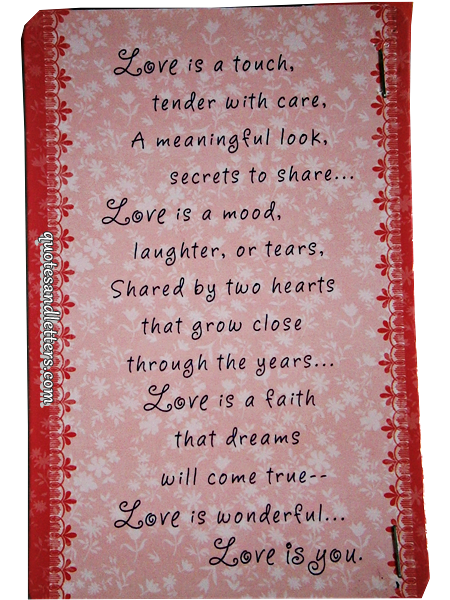 Love is a touch,
tender with care,
A meaningful look,
secrets to share...
Love is a mood,
laughter, or tears,
Shared by two hearts
that grow close
through the years...
Love is a faith
that dreams
will come true--
Love is wonderful...
Love is you.
quotesandletters.com